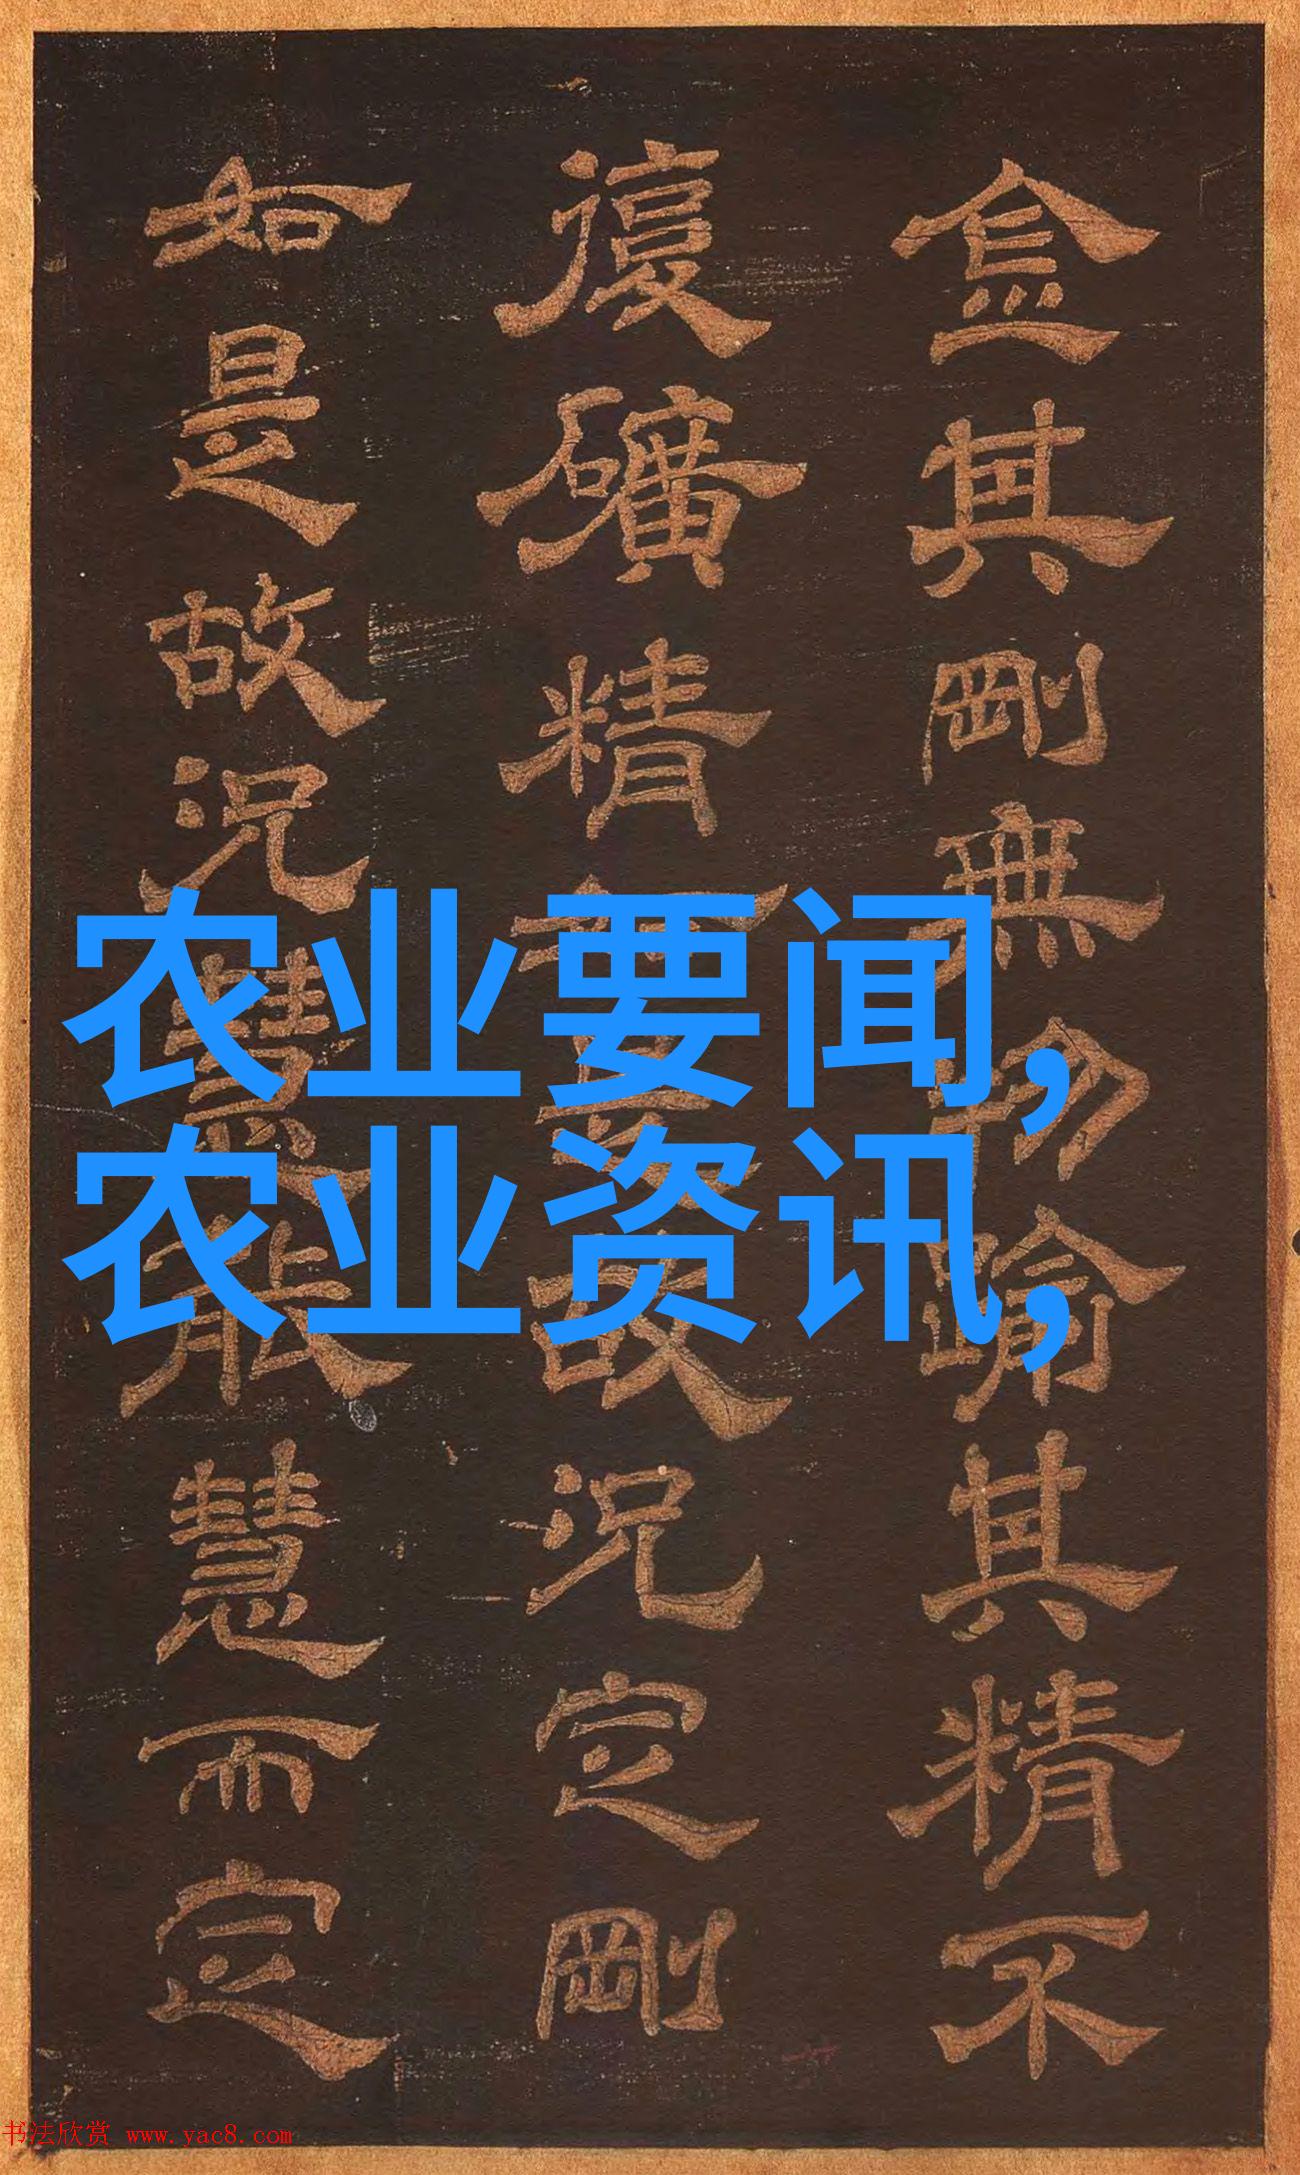 金其剛無物踰其精不
復礦精如是故況定剛
如是故況慧能慧而定
农业要闻,
农业资讯,
书法欣赏 www.yac8.com